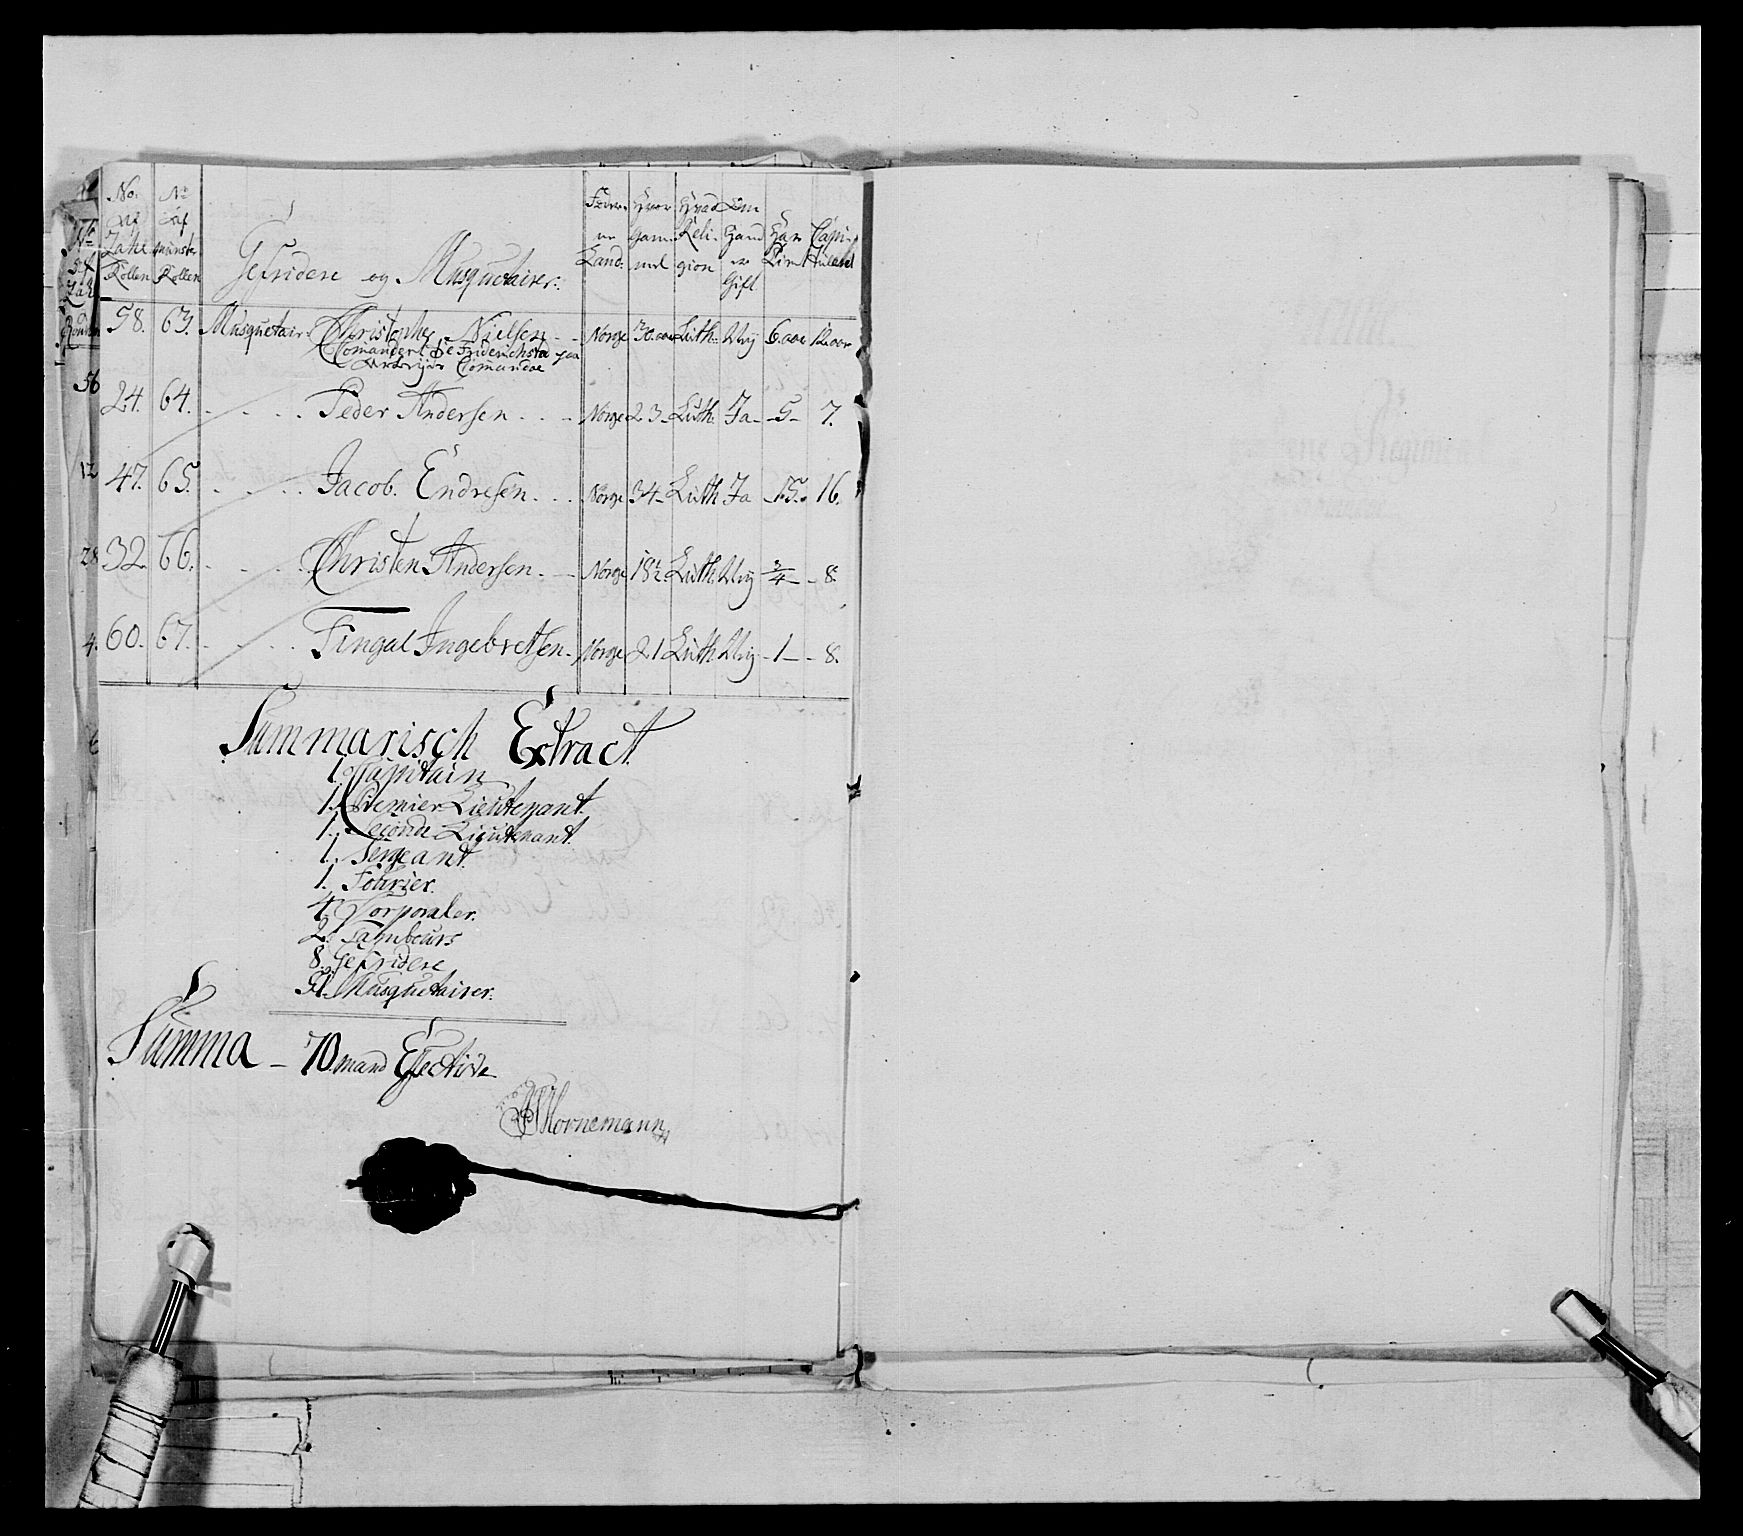 No. Af Zahl Rollen | No. Af Mynster Rollen | Gefridere og Musquetairer. | Føder- ne Land. | Hvor Gam- mel | Hvad Reli- gion | Om Hand er Gift | Har Tient | Capi- tuleret
58. 63. Musquetair. Christopher Nielsen - Norge 30. aar Luth: Ugj 6. aar 12. aar
Comandert Friderichstad paa
Comandoe
56
24. 64. Peder Andersen. Norge 23 Luth. Ja 5 7.
12
47. 65. Jacob. Endresen. Norge 34 Luth Ja 15. 16.
28
32. 66. Christen Andersen. Norge 18½ Luth. Ugj ¾ 8.
4.
60. 67. Fingal Ingebretsen. Norge 21 Luth Ugj 1 8.
Summarisch Extract
1. Capitain
1. Premier Lieutenant.
1. Seconde Lieutenant.
1. Sergeant.
1. Fourier.
4. Corporaler.
2. Tambours
8. Gefridere
51. Musquetairer.
Summa - 70. mand Effective
Hornemann